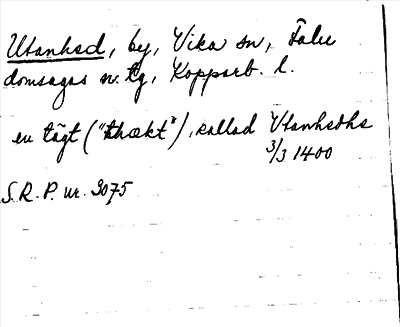 Utanhed, by, Vika sn, Falu
domsagas n. tg, Kopparb. l.
en tägt ("thækt"), kallad Vtanhedhs
3/3 1400
S.R.P. nr. 3075